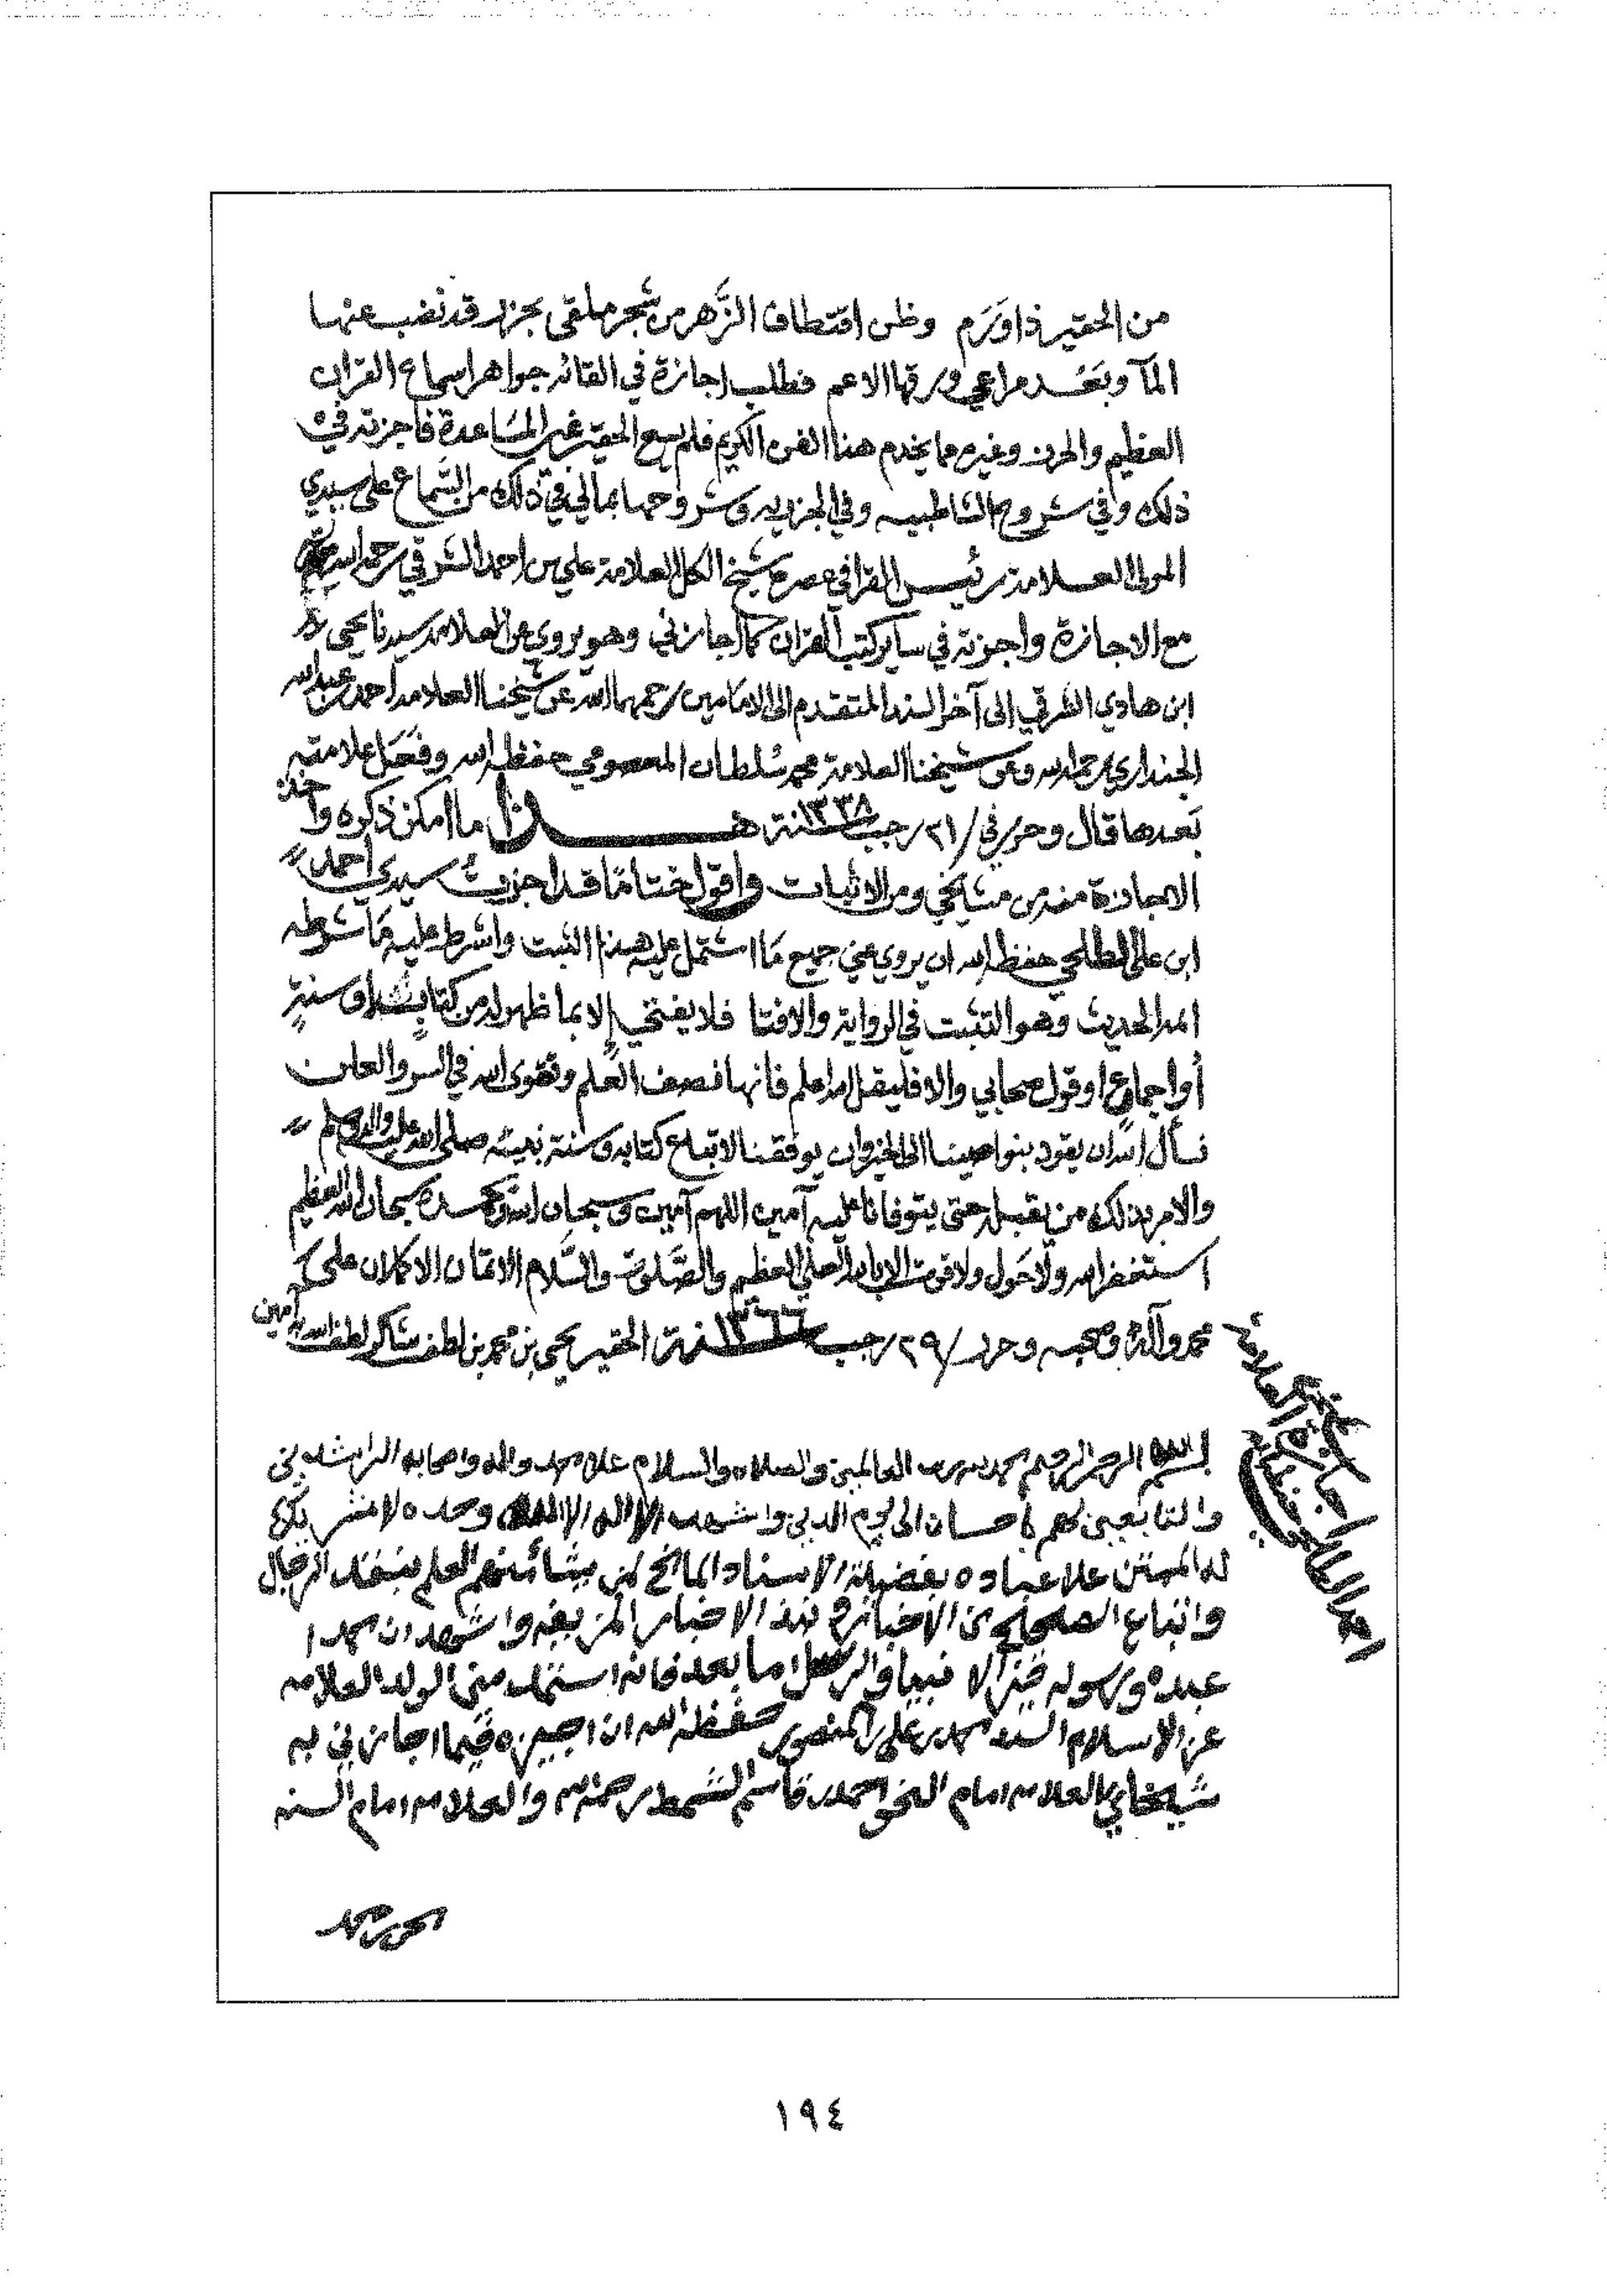 من الحقير ذا ورم وظن اقتطاف الزَّهر من شجر ملقى بجزاير قد نضب عنها
المآ وبَعُد مراعي ورقها الاعم فطلب اجازة في القائه جواهر اسماع القران
العظيم والحرف وغيره مما يخدم هذا الفن الكريم فلم يسع الحقير غير المساعدة فاجزته في
ذلك وفي شروح الشاطبيه وفي الجزريه وشروحها بمالي في ذلك من السَّماع على سيدي
المولى العلامة رئيس القرا في عصره شيخ الكل العلامة علي بن احمد الشرقي رحمه الله
مع الاجازة واجزته في ساير كتب القران كما اجازني وهو يروي عن العلامه سيدنا يحيى
ابن هادي الشرقي الى آخر السند المتقدم الى الامامين رحمهما الله عن شيخنا العلامه احمد بن عبدالله
الجنداري رحمه الله وعن شيخنا العلامة محمد سُلطان المعصومي حفظه الله وفَعَل علامته
بَعدها قال وحرر في /٢١/رجب سنة ١٣٣٨ هـذا ما امكن ذكره واخذ
الاجازة منه من مشايخي ومن الاثبات واقول ختامًا قد اجزت سيدي احمد
ابن علي الطلحي حفظه الله ان يروي عني جميع مَا اشتمل عليه هذا الثبت واشرط عليه مَا شرطه
ائمة الحديث وهو التثبت في الرواية والافتا فلا يفتي إلا بما ظهر له من كتابٍ او سنةٍ
أو اجماعٍ او قول صحابي والا فليقل الله اعلم فانها نصف العلم وتقوى الله في السر والعلن
نسأل الله ان يقود بنواصينا الى الخير وان يوفقنا لاتباع كتابه وسنة نبيه صلى الله عليه واله وسلم
والامر بذلك من يقبله حتى يتوفانا عليه آمين اللهم آمين وسبحان الله وبحمده سبحان الله العظيم
استغفر الله ولا حَول ولا قوة الا بالله العلي العظيم والصَّلوة والسَّلام الاتمان الاكملان على
محمد وآله وصحبه وحرر /٢٩/رجب سنة ١٣٦٦ الحقير يحيى بن محمد بن لطف شاكر لطف الله به آمين
بسم الله الرحمن الرحيم الحمد لله رب العالمين والصلاه والسلام علا محمد واله واصحابه الراشدين
والتابعين لهم باحسان الى يوم الدين واشهد الا اله الا الله وحده لا شريك
له الممتن علا عباده بفضيلة الاسناد المانح لمن يشا منهم العلم بنقد الرجال
واتباع الصحيح من الاخبار ونبذ الاخبار المزيفه واشهد ان محمدا
عبده ورسوله خير الانبيا والرسل اما بعد فانه استمد مني الولد العلامه
عز الاسلام السيد محمد بن علي المنصور حفظه الله ان اجيزه فيما اجازني به
شيخاي العلامه امام النحو احمد بن قاسم الشمط رحمه الله والعلامه امام السنه
١٩٤